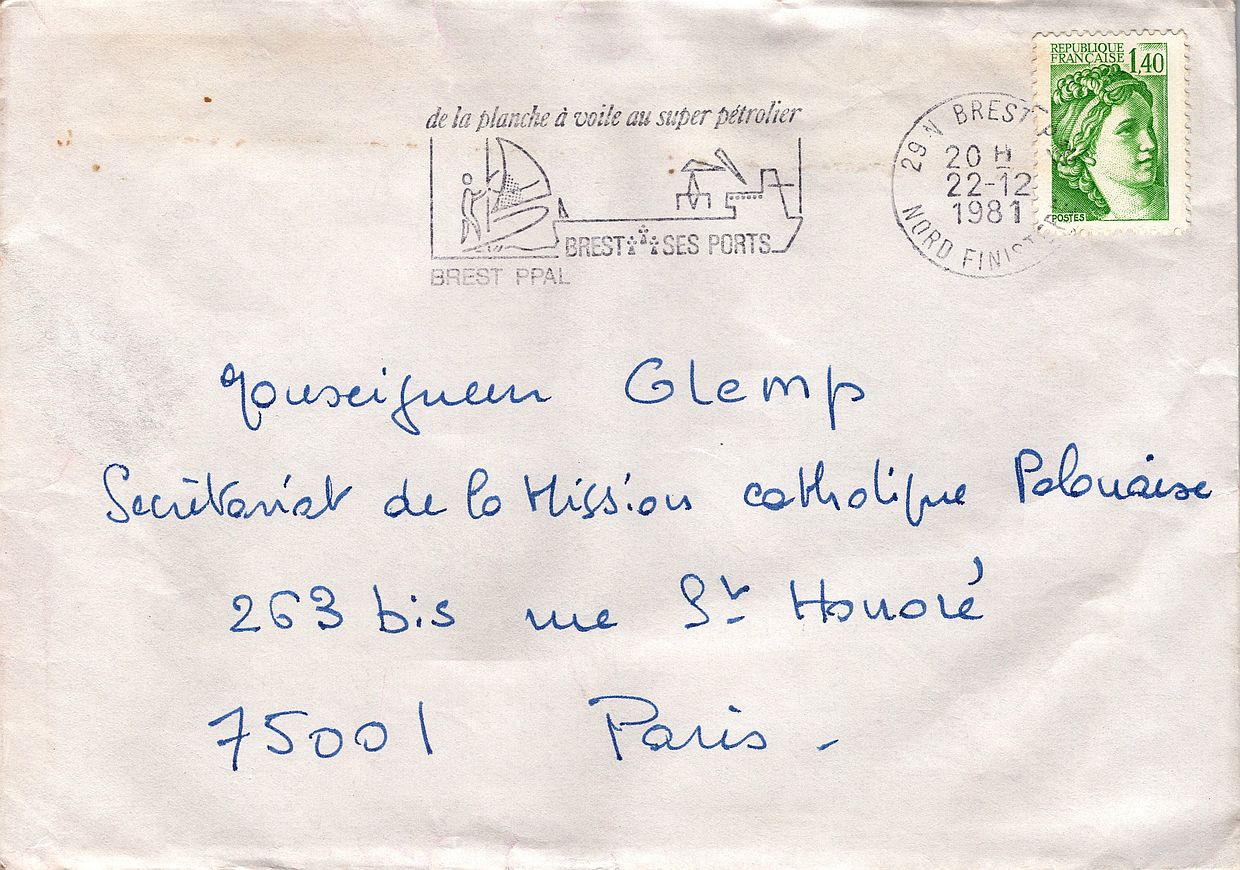 REPUBLIQUE
FRANÇAISE 1,40
POSTES
de la planche à voile au super pétrolier
BREST SES PORTS
BREST PPAL
29N BREST
20 H
22-12
1981
NORD FINIST
Monseigneur Glemp
Secrétariat de la Mission catholique Polonaise
263 bis rue St Honoré
75001 Paris -